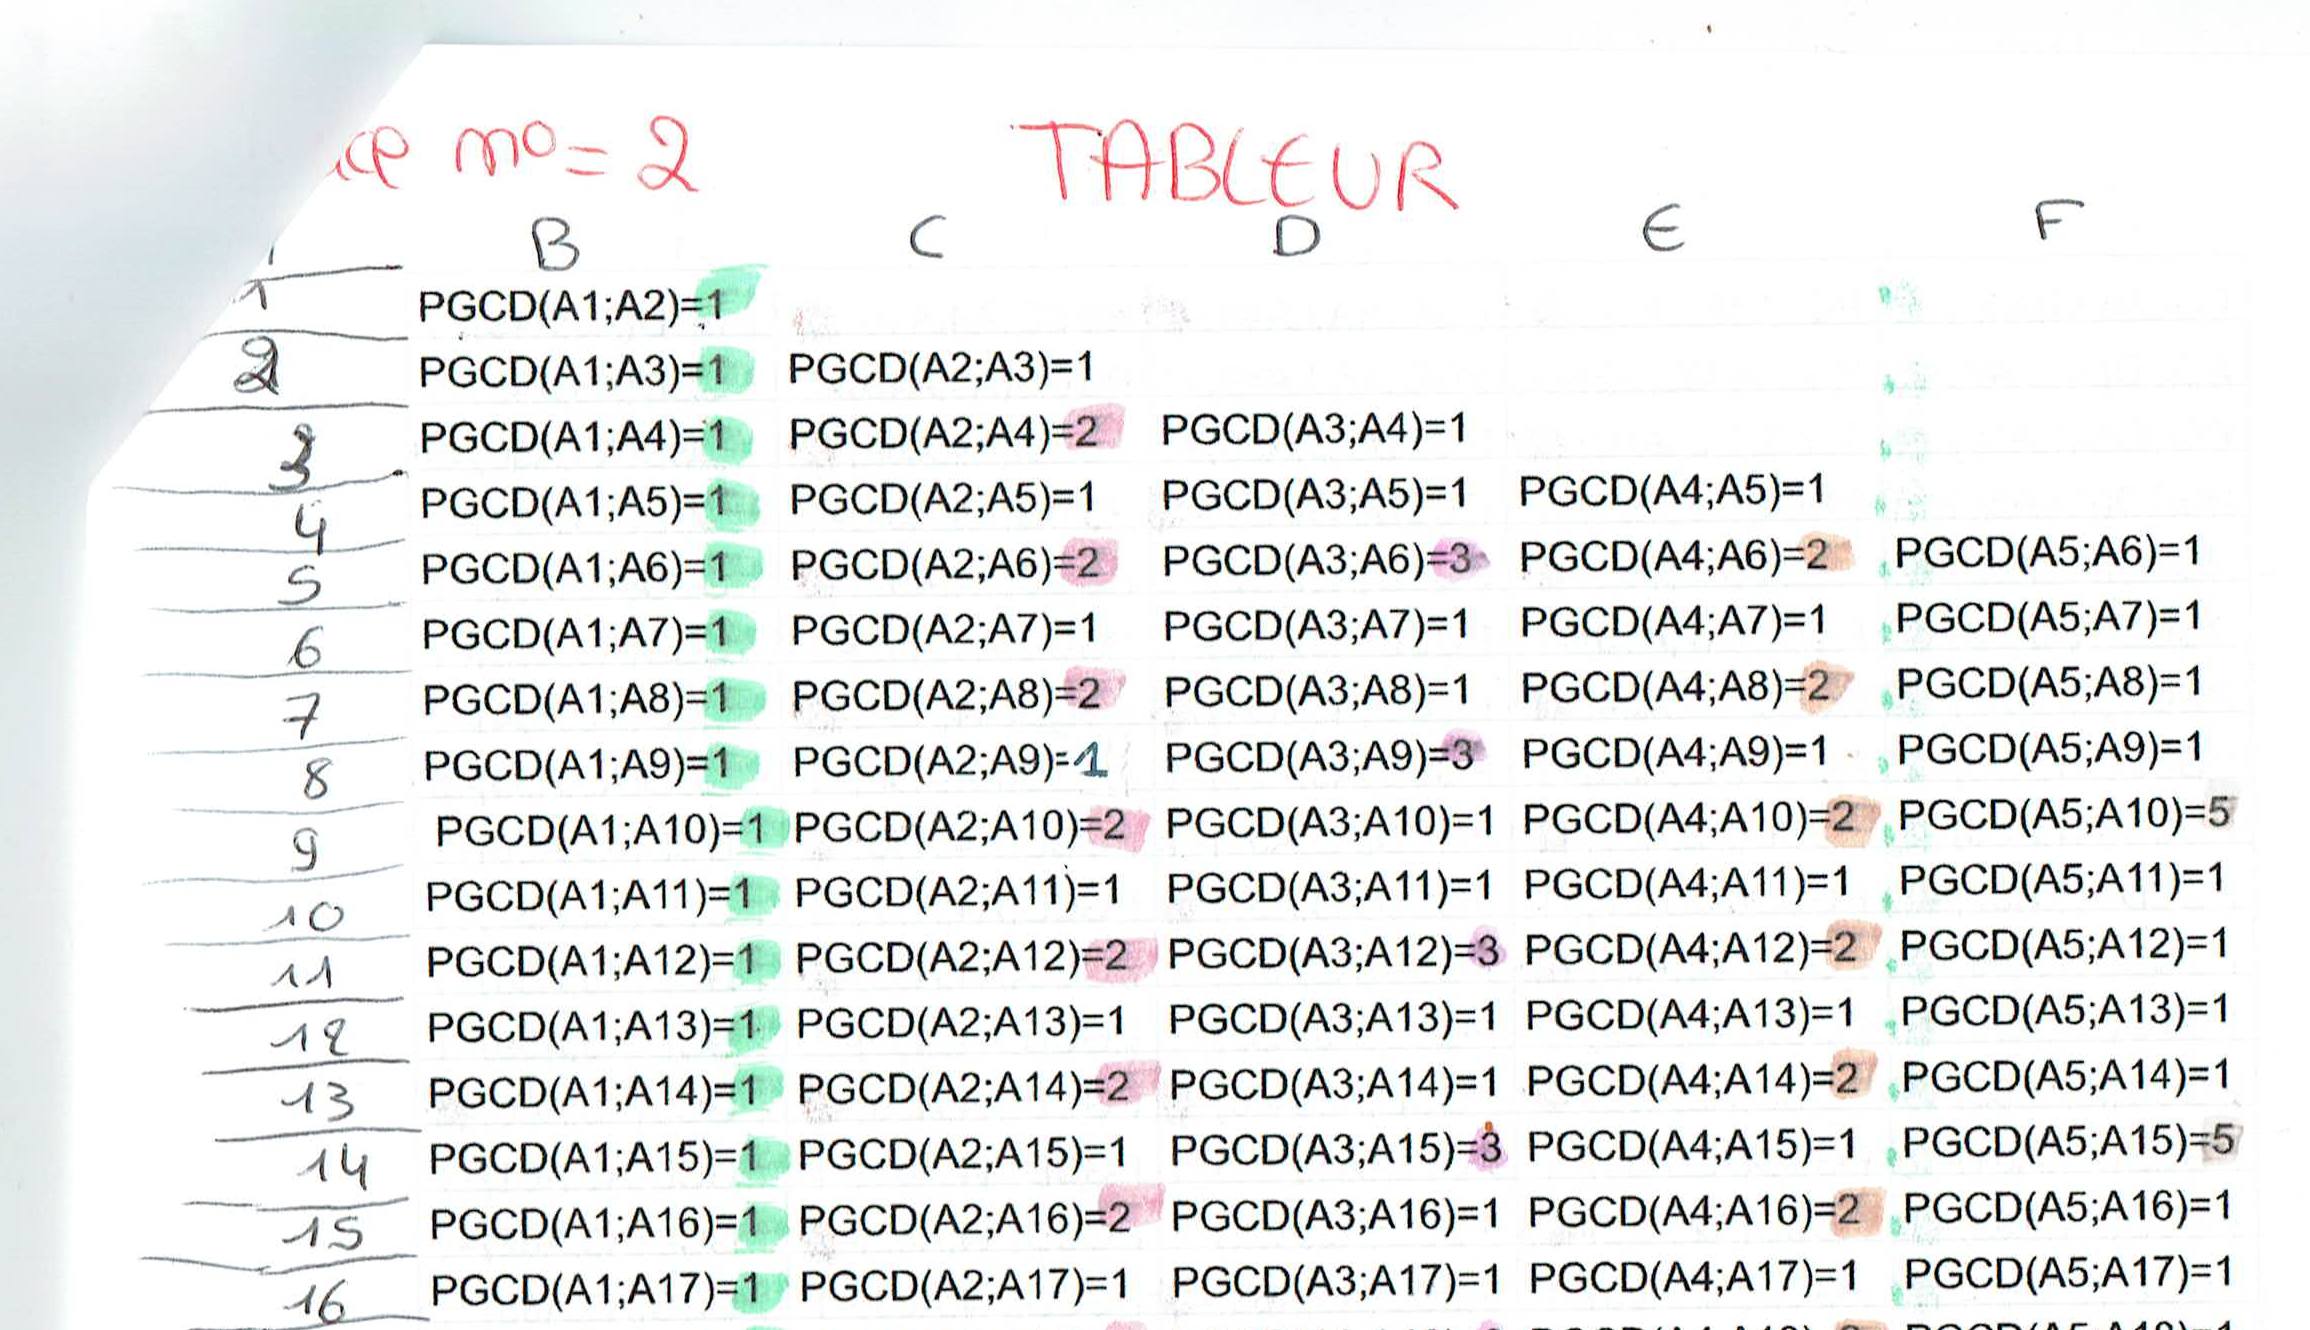 n° = 2 TABLEUR
B C D E F
1 PGCD(A1;A2)=1
2 PGCD(A1;A3)=1 PGCD(A2;A3)=1
3 PGCD(A1;A4)=1 PGCD(A2;A4)=2 PGCD(A3;A4)=1
4 PGCD(A1;A5)=1 PGCD(A2;A5)=1 PGCD(A3;A5)=1 PGCD(A4;A5)=1
5 PGCD(A1;A6)=1 PGCD(A2;A6)=2 PGCD(A3;A6)=3 PGCD(A4;A6)=2 PGCD(A5;A6)=1
6 PGCD(A1;A7)=1 PGCD(A2;A7)=1 PGCD(A3;A7)=1 PGCD(A4;A7)=1 PGCD(A5;A7)=1
7 PGCD(A1;A8)=1 PGCD(A2;A8)=2 PGCD(A3;A8)=1 PGCD(A4;A8)=2 PGCD(A5;A8)=1
8 PGCD(A1;A9)=1 PGCD(A2;A9)=1 PGCD(A3;A9)=3 PGCD(A4;A9)=1 PGCD(A5;A9)=1
9 PGCD(A1;A10)=1 PGCD(A2;A10)=2 PGCD(A3;A10)=1 PGCD(A4;A10)=2 PGCD(A5;A10)=5
10 PGCD(A1;A11)=1 PGCD(A2;A11)=1 PGCD(A3;A11)=1 PGCD(A4;A11)=1 PGCD(A5;A11)=1
11 PGCD(A1;A12)=1 PGCD(A2;A12)=2 PGCD(A3;A12)=3 PGCD(A4;A12)=2 PGCD(A5;A12)=1
12 PGCD(A1;A13)=1 PGCD(A2;A13)=1 PGCD(A3;A13)=1 PGCD(A4;A13)=1 PGCD(A5;A13)=1
13 PGCD(A1;A14)=1 PGCD(A2;A14)=2 PGCD(A3;A14)=1 PGCD(A4;A14)=2 PGCD(A5;A14)=1
14 PGCD(A1;A15)=1 PGCD(A2;A15)=1 PGCD(A3;A15)=3 PGCD(A4;A15)=1 PGCD(A5;A15)=5
15 PGCD(A1;A16)=1 PGCD(A2;A16)=2 PGCD(A3;A16)=1 PGCD(A4;A16)=2 PGCD(A5;A16)=1
16 PGCD(A1;A17)=1 PGCD(A2;A17)=1 PGCD(A3;A17)=1 PGCD(A4;A17)=1 PGCD(A5;A17)=1